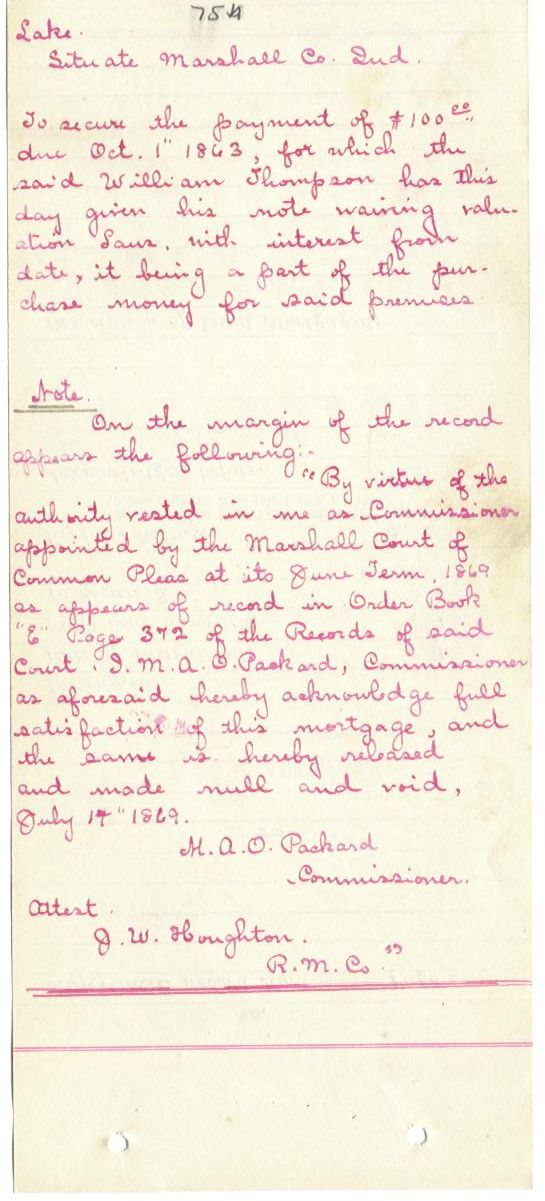 75½
Lake.
Situate Marshall Co. Ind.
To secure the payment of $100 00.
due Oct. 1" 1863, for which the
said William Thompson has this
day given his note waiving valu-
ation Laws, with interest from
date, it being a part of the pur-
chase money for said premises.
Note.
On the margin of the record
appears the following:-
"By virtue of the
authority vested in me as Commissioner
appointed by the Marshall Court of
Common Pleas at its June Term, 1869
as appears of record in Order Book
"E" Page 372 of the Records of said
Court. I. M. A. O. Packard, Commissioner
as aforesaid hereby acknowledge full
satisfaction of this mortgage, and
the same is hereby released
and made null and void,
July 14" 1869.
M. A. O. Packard
Commissioner.
Attest.
J. W. Houghton.
R. M. Co "